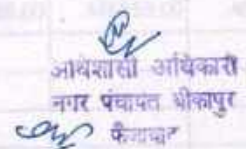 अधिशासी अधिकारी
नगर पंचायत बीकापुर
फैजाबाद